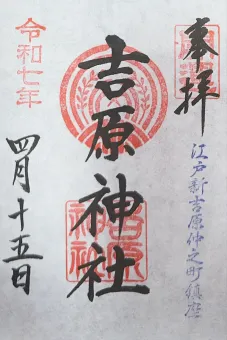 奉拝
江戸新吉原仲之町鎮座
吉原神社
令和七年
四月十五日